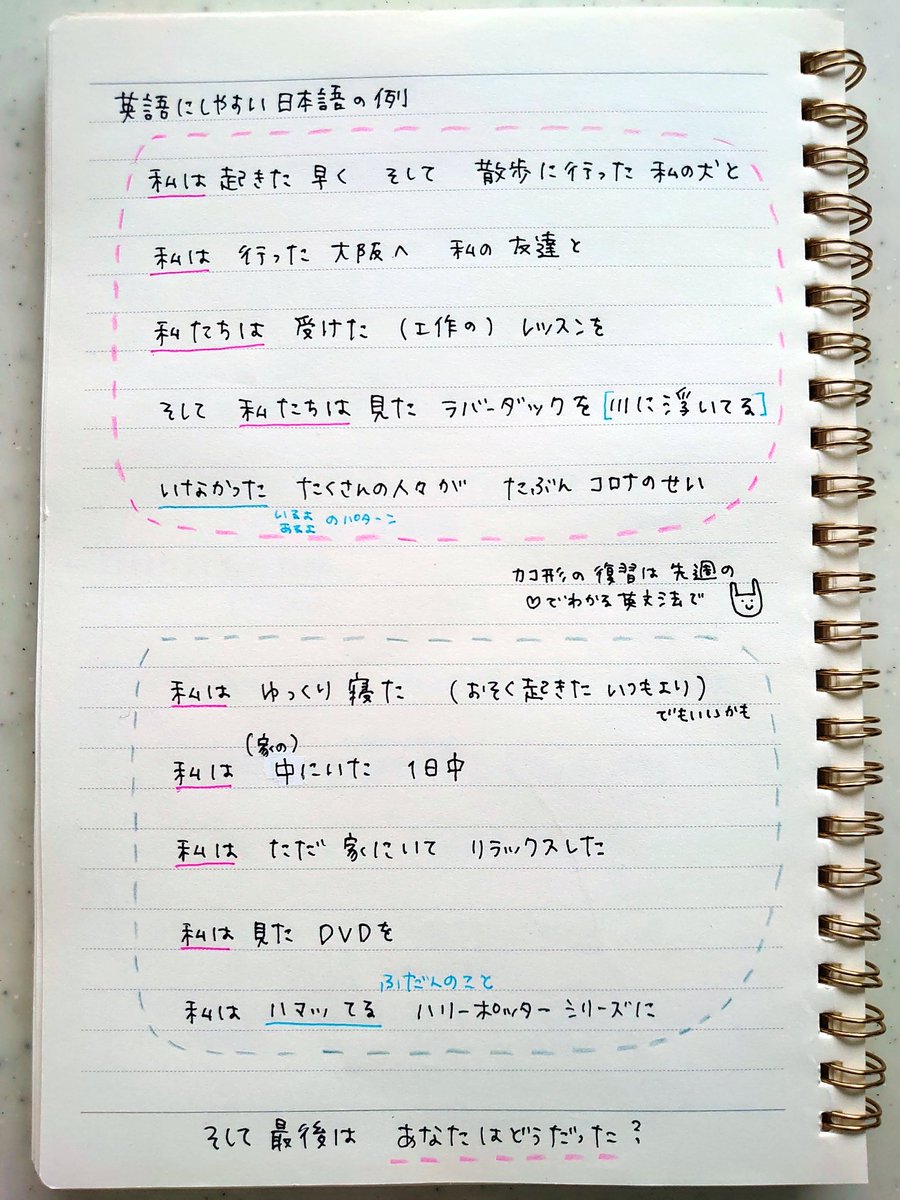 英語にしやすい日本語の例
私は 起きた 早く そして 散歩に行った 私の犬と
私は 行った 大阪へ 私の 友達と
私たちは 受けた (工作の) レッスンを
そして 私たちは 見た ラバーダックを [川に浮いてる]
いなかった たくさんの人々が たぶん コロナのせい
いるよ
あるよ のパターン
カコ形の復習は先週の
♡でわかる英文法で
私は ゆっくり 寝た (おそく起きた いつもより)
でもいいかも
(家の)
私は 中にいた 1日中
私は ただ 家にいて リラックスした
私は 見た DVDを
ふだんのこと
私は ハマッてる ハリーポッターシリーズに
そして 最後は あなたはどうだった?